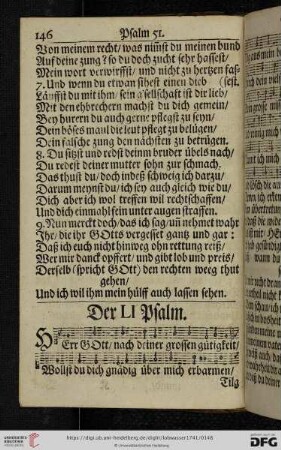 146 Psalm 51.
Von meinem recht/ was nimst du meinen bund
Auf deine zung? so du doch zucht sehr hassest/
Mein wort verwirffst/ und nicht zu hertzen faß-
7. Und wenn du etwan sihest einen dieb (sest.
Läuffst du mit ihm/ sein gesellschaft ist dir lieb/
Mit den ehbrechern machst du dich gemein/
Bey huren du auch gerne pflegst zu seyn/
Dein böses maul die leut pflegt zu belügen/
Dein falsche zung den nächsten zu betrügen.
8. Du sitzst und redst deinm bruder übels nach/
Du redest deiner mutter sohn zur schmach.
Das thust du/ doch indeß schweig ich darzu/
Darum meynst du/ ich sey auch gleich wie du/
Dich aber ich wol treffen wil rechtschaffen/
Und dich einmahl sein unter augen straffen.
9. Nun merckt doch/ das ich sag/ än nehmet wahr
Ihr/ die ihr GOtts vergesset gantz und gar:
Daß ich euch nicht hinweg ohn rettung reiß/
Wer mir danck opffert/ und gibt lob und preis/
Derselb (spricht GOtt) den rechten weeg thut
gehen/
Und ich wil ihm mein hülff auch lassen sehen.
Der LI Psalm.
HErr GOtt/ nach deiner grossen gütigkeit/
Wollst du dich gnädig über mich erbarmen/
Tilg
http://digi.ub.uni-heidelberg.de/diglit/lobwasser1741/0148
© Universitätsbibliothek Heidelberg
gefördert durch die
DFG